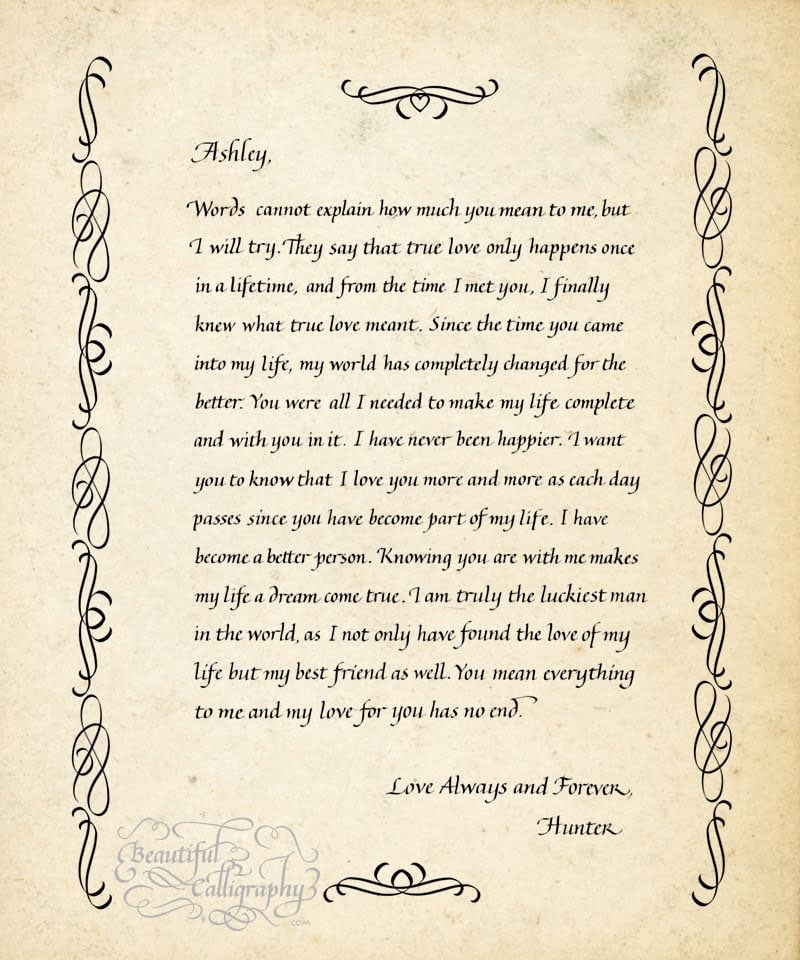 Ashley,
Words cannot explain how much you mean to me, but
I will try. They say that true love only happens once
in a lifetime, and from the time I met you, I finally
knew what true love meant. Since the time you came
into my life, my world has completely changed for the
better. You were all I needed to make my life complete
and with you in it. I have never been happier. I want
you to know that I love you more and more as each day
passes since you have become part of my life. I have
become a better person. Knowing you are with me makes
my life a dream come true. I am truly the luckiest man
in the world, as I not only have found the love of my
life but my best friend as well. You mean everything
to me and my love for you has no end.
Love Always and Forever,
Hunter
Beautiful
Calligraphy
.COM